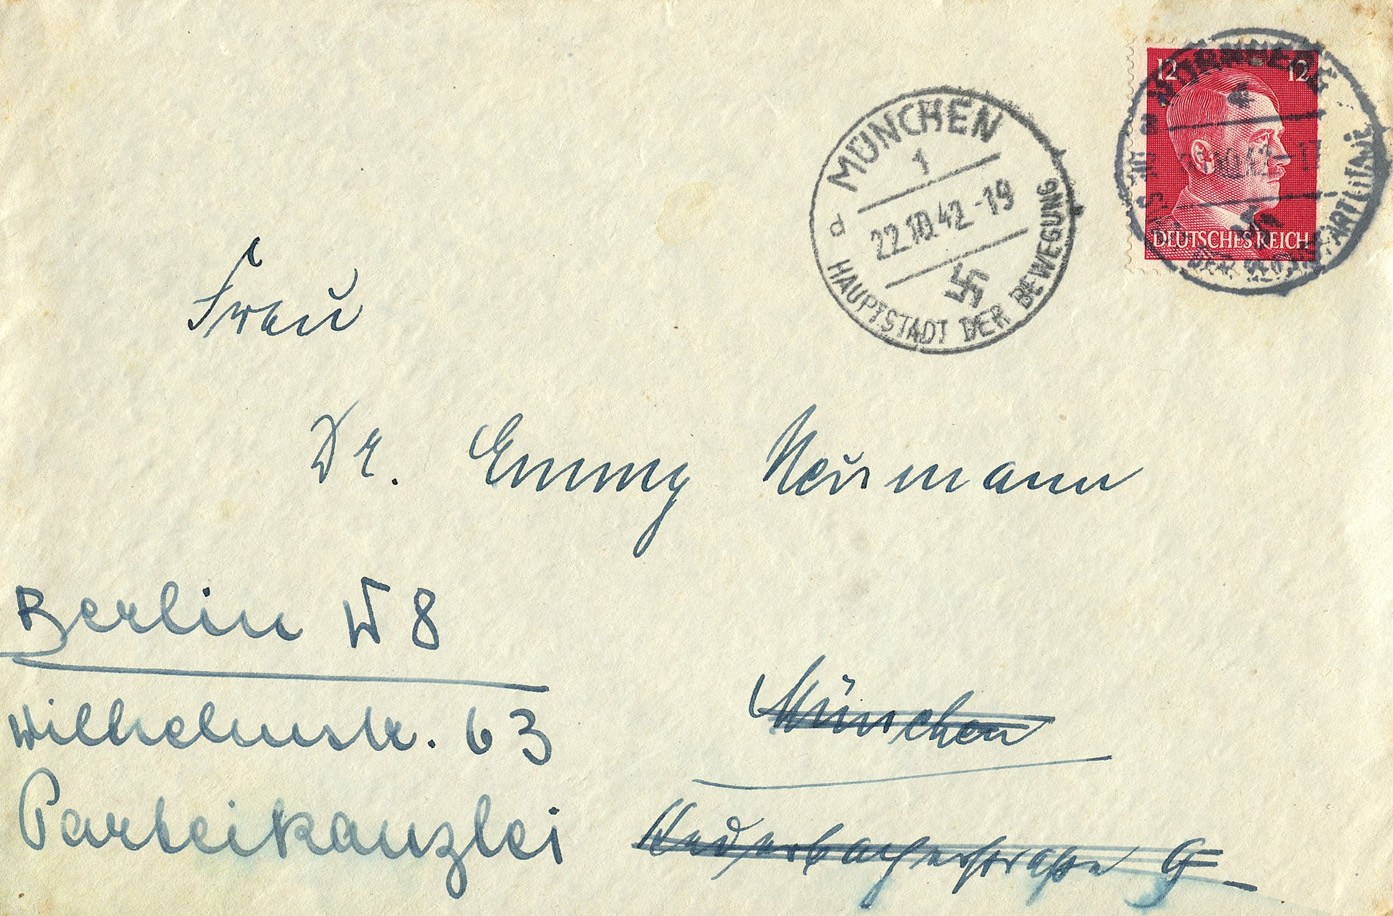 12 12
NÜRNBERG
DEUTSCHES REICH
MÜNCHEN
1
a 22.10.42.-19
HAUPTSTADT DER BEWEGUNG
Frau
Dr. Emmy Neumann
Berlin W 8
Wilhelmstr. 63
Parteikanzlei
München
9